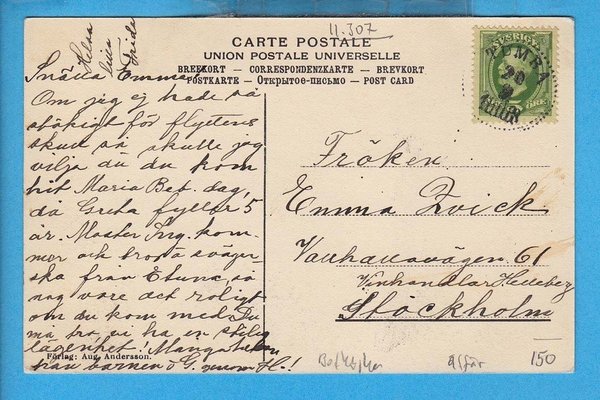 11.307
CARTE POSTALE
UNION POSTALE UNIVERSELLE
BREFKORT – CORRESPONDENZKARTE – BREVKORT
POSTKARTE – Открытое-письмо – POST CARD
SVERIGE
20
ÖRE
Helsa
lilla
Frida
Snälla Emma
Om jag ej hade så
stökigt för flyttens
skull så skulle jag
vilja du du kom
hit Maria Beb. dag,
då Greta fyller 5
år. Moster Ing. kom-
mer och svåger
ska från så
nog vore det roligt
om du kom med. Du
må tro vi ha en
lägenhet! Många
från barnen o G. H.!
Fröken
Emma Zvick
Valhallavägen 61
Vinhandlar Hedeberg
Stockholm
Förlag: Aug. Andersson.
150